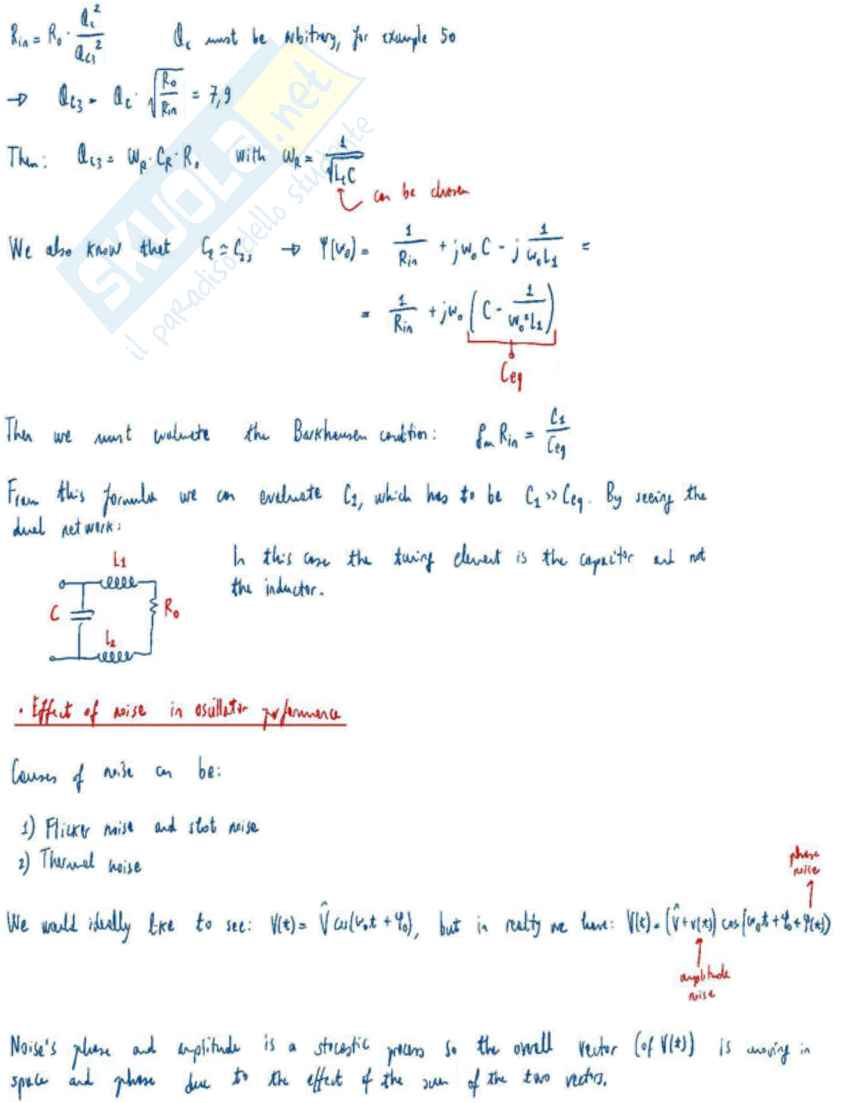 Rin = R₀ · Qc² / Qc3²   Qc must be arbitrary, for example 50
→ Qc3 = Qc · √(R₀/Rin) = 7,9
Then: Qc3 = ωR · CR · R₀ with ωR = 1/√(L₁C)
can be chosen
We also know that → Y(ω₀) = 1/Rin + jω₀C - j 1/(ω₀L1) =
= 1/Rin + jω₀ (C - 1/(ω₀²L1))
Ceq
Then we must evaluate the Barkhausen condition: gm Rin = C1/Ceq
From this formula we can evaluate C1, which has to be C1 >> Ceq. By seeing the
dual network:
L1
C
R₀
L2
In this case the tuning element is the capacitor and not
the inductor.
· Effect of noise in oscillator performance
Causes of noise can be:
1) Flicker noise and shot noise
2) Thermal noise
phase
noise
We would ideally like to see: V(t) = V̂ cos(ω₀t + φ₀), but in reality we have: V(t) = (V̂+v(t)) cos(ω₀t + φ₀ + φ(t))
amplitude
noise
Noise's phase and amplitude is a stocastic process so the overall vector (of V(t)) is moving in
space and phase due to the effect of the sum of the two vectors.
SKUOLA.net
il paradiso dello studente